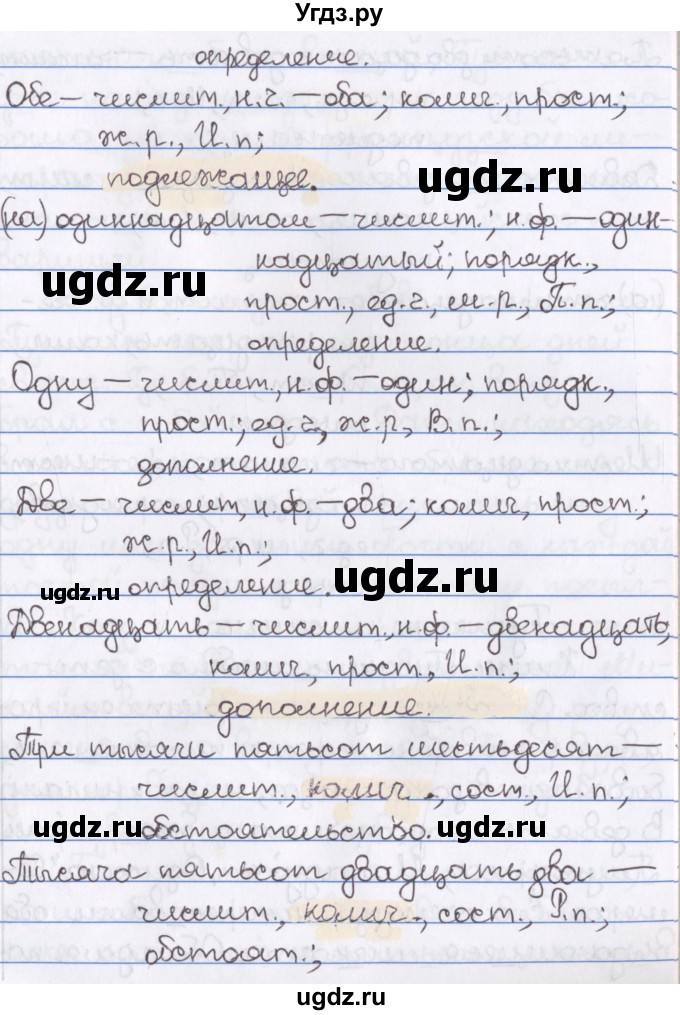 Угдз.ру
определение.
Обе – числит., н.г. – оба; колич., прост.;
ж.р., И.п.;
подлежащее.
ugdz.ru
(на) одиннадцатом – числит.; н.ф. – один-
надцатый; порядк.,
ugdz.ru
прост., ед.г., м.р., П.п.;
определение.
Одну – числит., н.ф. – один; порядк.,
прост.; ед.г., ж.р., В.п.;
дополнение.
Две – числит., н.ф. – два; колич., прост.;
ж.р., И.п.;
ugdz.ru определение. ugdz.ru
Двенадцать – числит., н.ф. – двенадцать,
колич., прост., И.п.;
дополнение.
Три тысячи пятьсот шестьдесят –
числит., колич., сост., И.п.;
ugdz.ru обстоятельство. ugdz.ru
Тысяча пятьсот двадцать два –
числит., колич., сост., Р.п.;
обстоят.;
ugdz.ru